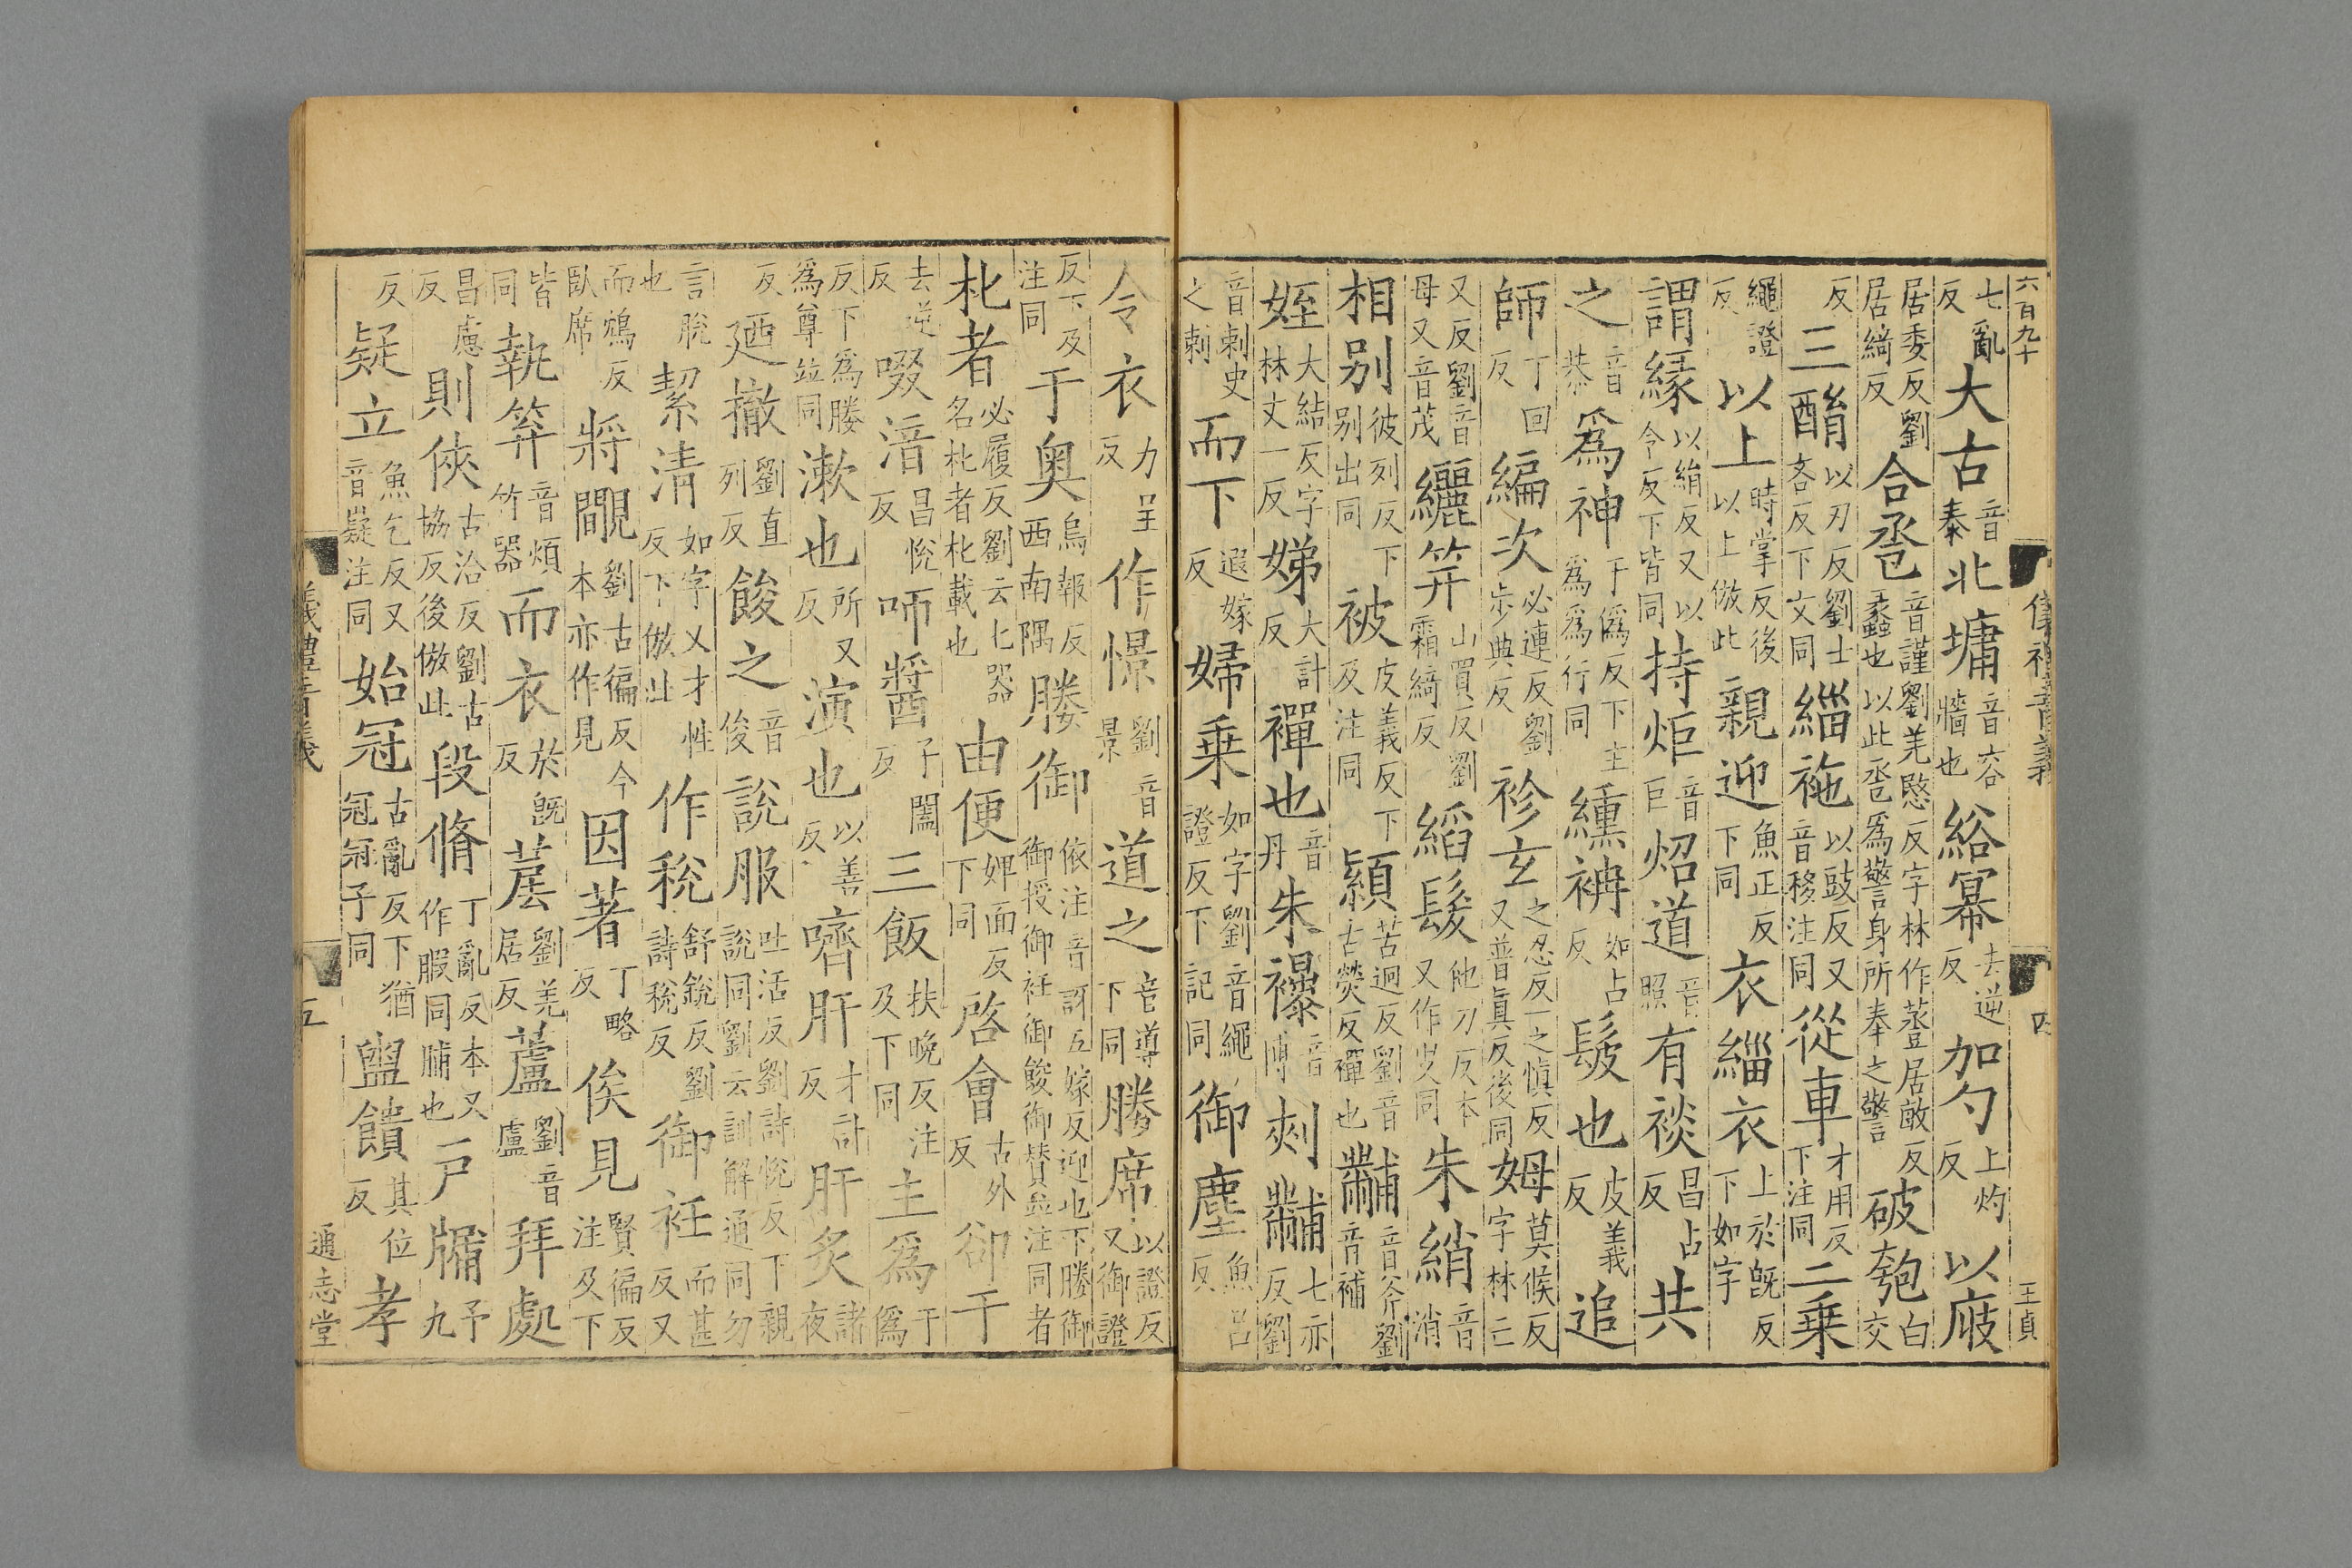 六百九十
王貞
七亂反大古音泰北墉音容牆也綌冪去逆反加勺上灼反以㡿
居委反劉居綺反合巹音謹劉羌愍反字林作蒸居敵反蠡也以此巹爲警身所奉之警破匏白交
反三酳以刃反劉士吝反下文同緇袘以豉反又音移注同從車才用反下注同二乗
繩證反以上時掌反後以上倣此親迎魚正反下同衣緇衣上於旣反下如字
謂緣以絹反又以令反下皆同持炬音巨炤道音照有裧昌占反共
之音恭爲神于僞反下主爲爲行同纁袡如占反髲也皮義反追
師丁回反編次必連反劉步典反袗玄之忍反一之愼反又普眞反後同姆莫候反字林亡
又反劉音母又音茂纚笄山買反劉霜綺反縚髮他刀反本又作㚐同朱綃音消
相別彼列反下別出同被皮義反下及注同顈苦迥反劉音古熒反襌也黼音斧劉音補
姪大結反字林丈一反娣大計反襌也音丹朱襮音博刺黼七亦反劉
音刺史之刺而下遐嫁反婦乗如字劉音繩證反下記同御塵魚呂反
令衣力呈反作憬劉音景道之音導下同媵席以證反又御證
反下及注同于奥烏報反西南隅媵御依注音訝五嫁反迎也下媵御御授御衽御餕御賛竝注同者
朼者必履反劉云匕器名朼者朼載也由便婢面反下同啓會古外反卻干
去逆反啜湆昌悅反咂醬子闔反三飯扶晩反注及下同主爲于僞
反下爲媵爲尊竝同漱也所又反演也以善反嚌肝才計反肝炙諸夜
反廼撤劉直列反餕之音俊說服吐活反劉詩悅反下親說同劉云訓解通同勿
言脫也絜清如字又才性反下倣此作稅舒銳反劉詩稅反御衽而甚反又
而鴆反臥席將覵劉古徧反今本亦作見因著丁略反俟見賢徧反注及下
皆同執笲音煩竹器而衣於旣反䒧劉羌居反蘆劉音盧拜處
昌慮反則俠古洽反劉古協反後倣此段脩丁亂反本又作腶同脯也戸牖予九
反疑立魚乞反又音嶷注同始冠古亂反下猶冠冠子同盥饋其位反孝
五
通志堂